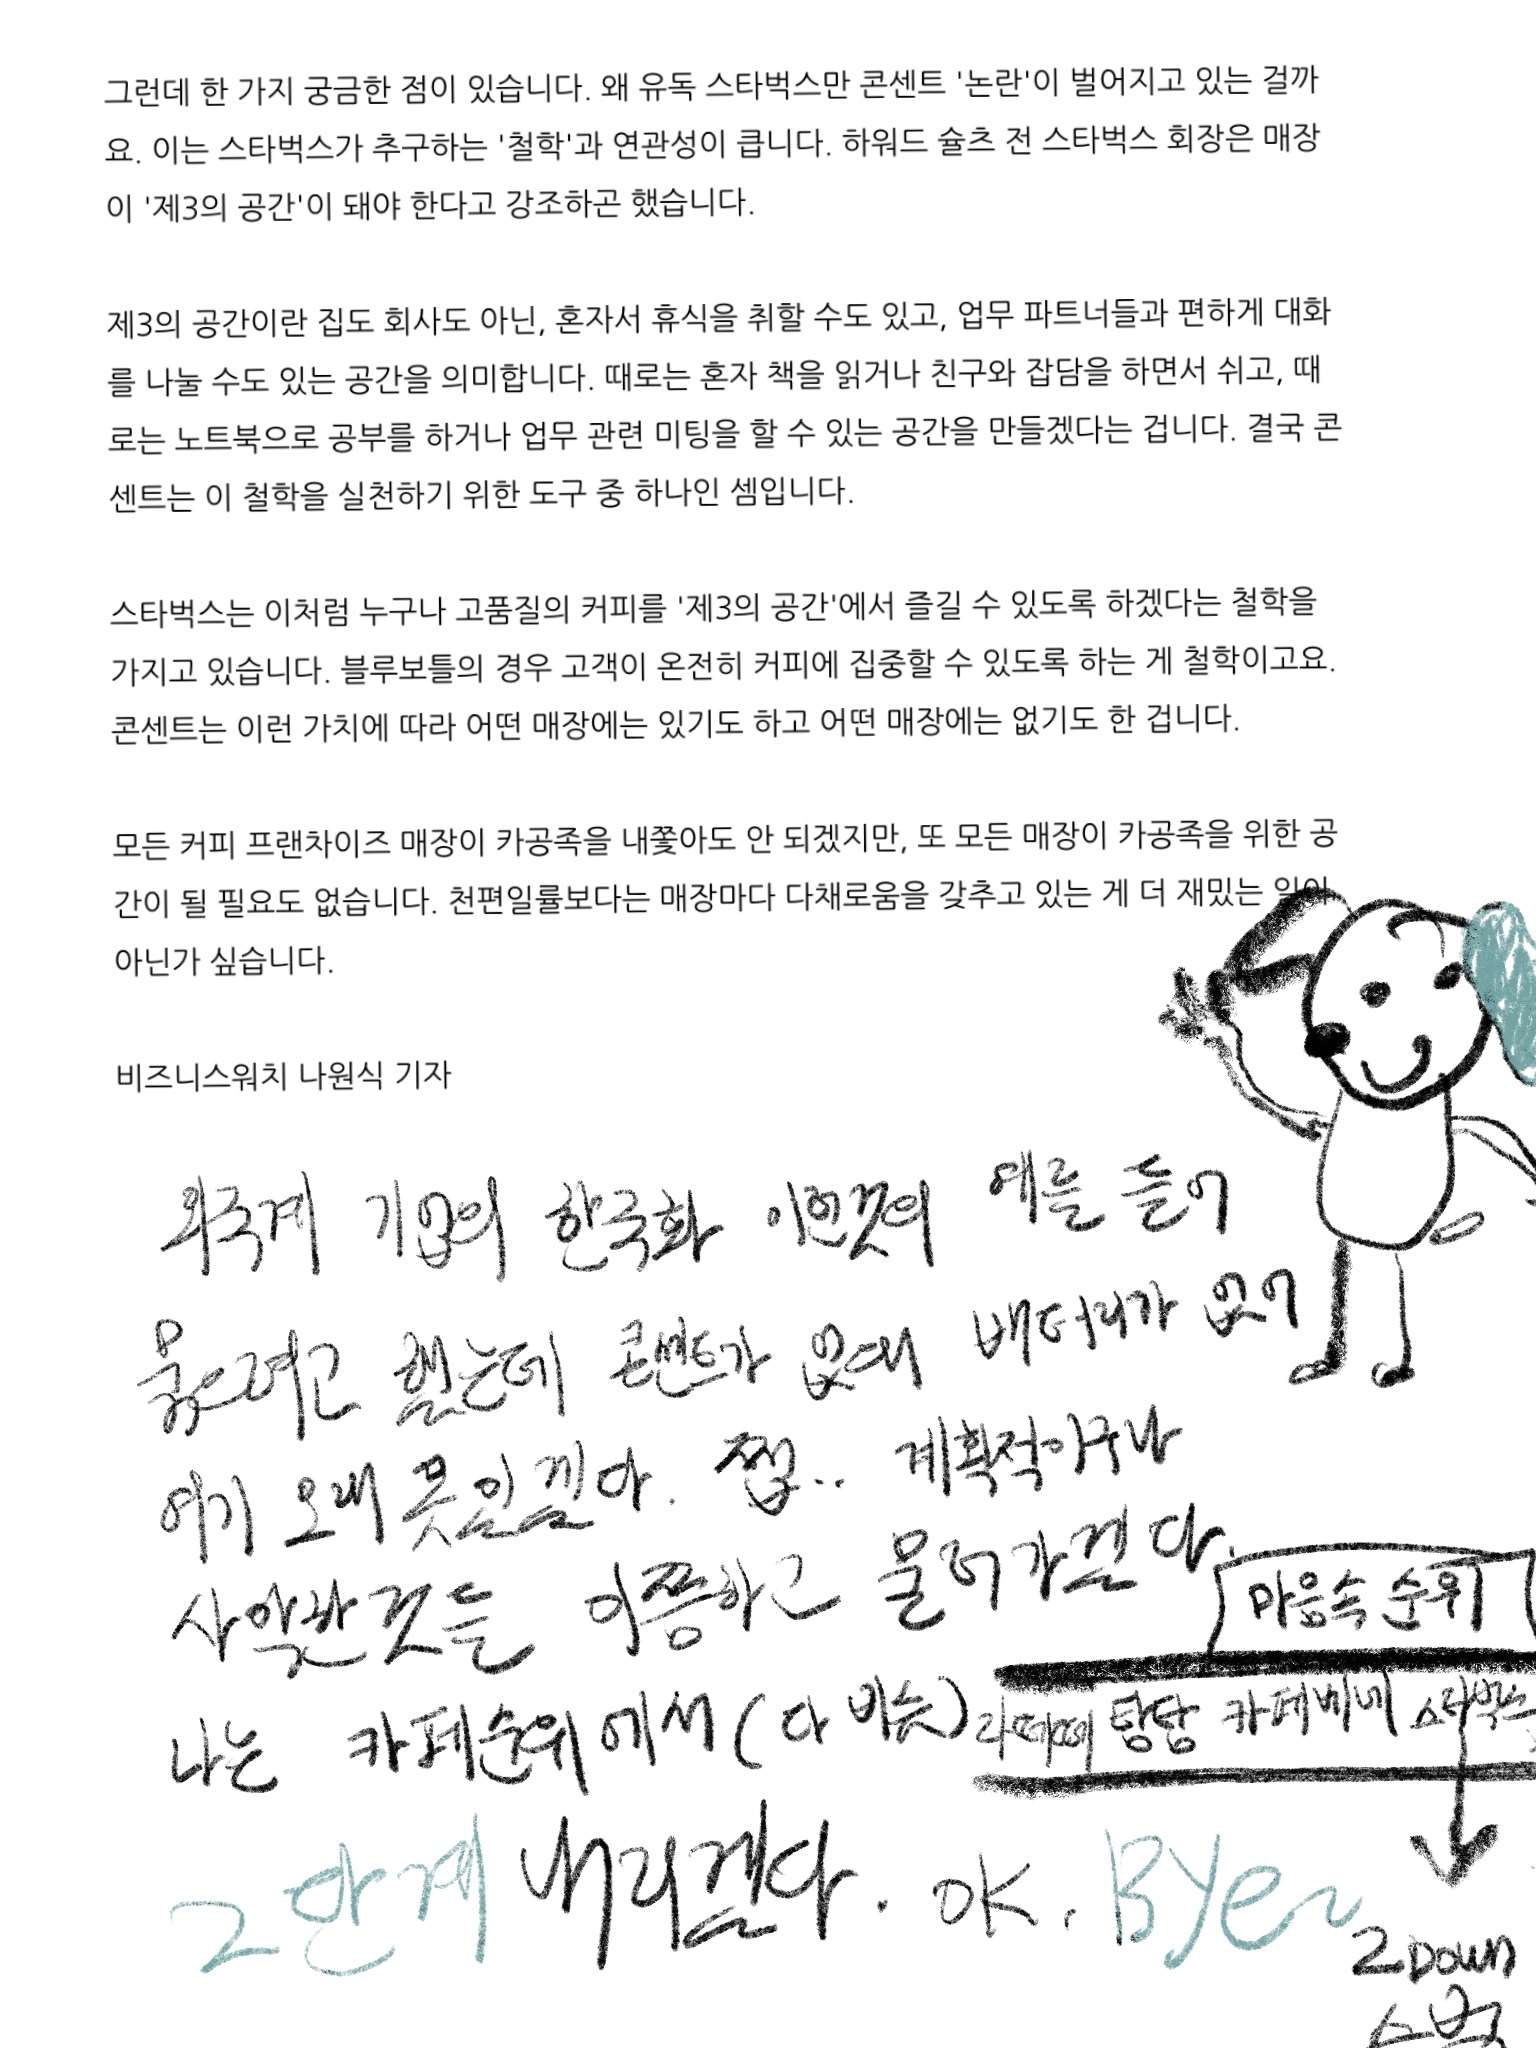 그런데 한 가지 궁금한 점이 있습니다. 왜 유독 스타벅스만 콘센트 '논란'이 벌어지고 있는 걸까
요. 이는 스타벅스가 추구하는 '철학'과 연관성이 큽니다. 하워드 슐츠 전 스타벅스 회장은 매장
이 '제3의 공간'이 돼야 한다고 강조하곤 했습니다.
제3의 공간이란 집도 회사도 아닌, 혼자서 휴식을 취할 수도 있고, 업무 파트너들과 편하게 대화
를 나눌 수도 있는 공간을 의미합니다. 때로는 혼자 책을 읽거나 친구와 잡담을 하면서 쉬고, 때
로는 노트북으로 공부를 하거나 업무 관련 미팅을 할 수 있는 공간을 만들겠다는 겁니다. 결국 콘
센트는 이 철학을 실천하기 위한 도구 중 하나인 셈입니다.
스타벅스는 이처럼 누구나 고품질의 커피를 '제3의 공간'에서 즐길 수 있도록 하겠다는 철학을
가지고 있습니다. 블루보틀의 경우 고객이 온전히 커피에 집중할 수 있도록 하는 게 철학이고요.
콘센트는 이런 가치에 따라 어떤 매장에는 있기도 하고 어떤 매장에는 없기도 한 겁니다.
모든 커피 프랜차이즈 매장이 카공족을 내쫓아도 안 되겠지만, 또 모든 매장이 카공족을 위한 공
간이 될 필요도 없습니다. 천편일률보다는 매장마다 다채로움을 갖추고 있는 게 더 재밌는 일이
아닌가 싶습니다.
비즈니스워치 나원식 기자
외국계 기업의 한국화 이런것의 예를 들어
묶으려고 했는데 콘센트가 없대 배터리가 없어
여기 오래 못있겠다. 쩝.. 계획적이구나
사악한것들 이쯤하고 물러가겠다.
마음속 순위
나는 카페순위에서 (다 비슷) 라떼떼 탐탐 카페베네 스타벅스
2단계 내리겠다. OK. BYe~
2 DOWN
스벅